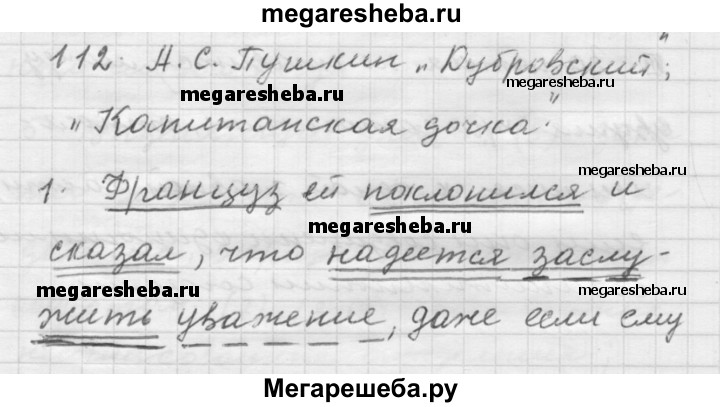 megaresheba.ru
112. А. С. Пушкин „Дубровский";
megaresheba.ru
megaresheba.ru
„Капитанская дочка."
megaresheba.ru
1. Француз ей поклонился и
megaresheba.ru
сказал, что надеется заслу-
megaresheba.ru
megaresheba.ru
жить уважение, даже если ему
Мегарешеба.ру